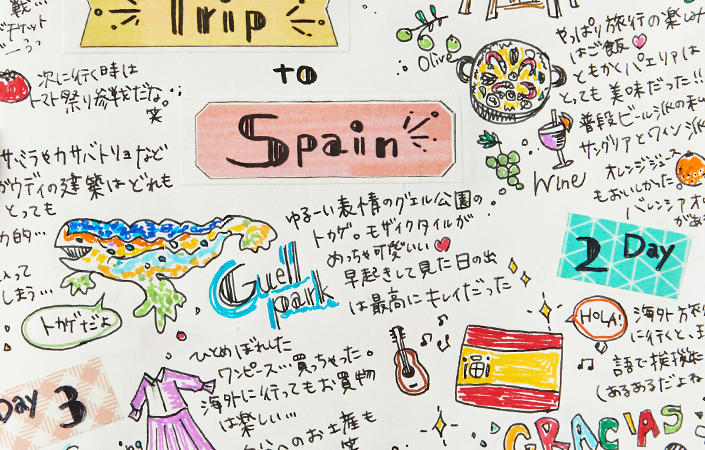 戦…
Trip
to
Spain
次に行く時は
トマト祭り参戦だな。
笑。
Olive
やっぱり旅行の楽しみ
はご飯
ともかくパエリアは
とっても美味だった!!
普段ビール派の私
サングリアとワイン派
Wine
オレンジジュース
もおいしかった。
バレンシアオ
があ
サベラやカサバトリョなど
ガウディの建築はどれも
とっても
力的…
入って
しまう…
トカゲだよ
ゆるーい表情のグエル公園の
トカゲ。モザイクタイルが
めっちゃ可愛いい
早起きして見た日の出
は最高にキレイだった
Guell
park
2 Day
HOLA!
海外旅
に行くと、
語で挨拶
(あるあるだよね
Day 3
ひとめぼれした
ワンピース…買っちゃった。
海外に行ってもお買物
は楽しい…
へのお土産も
笑
GRACIAS